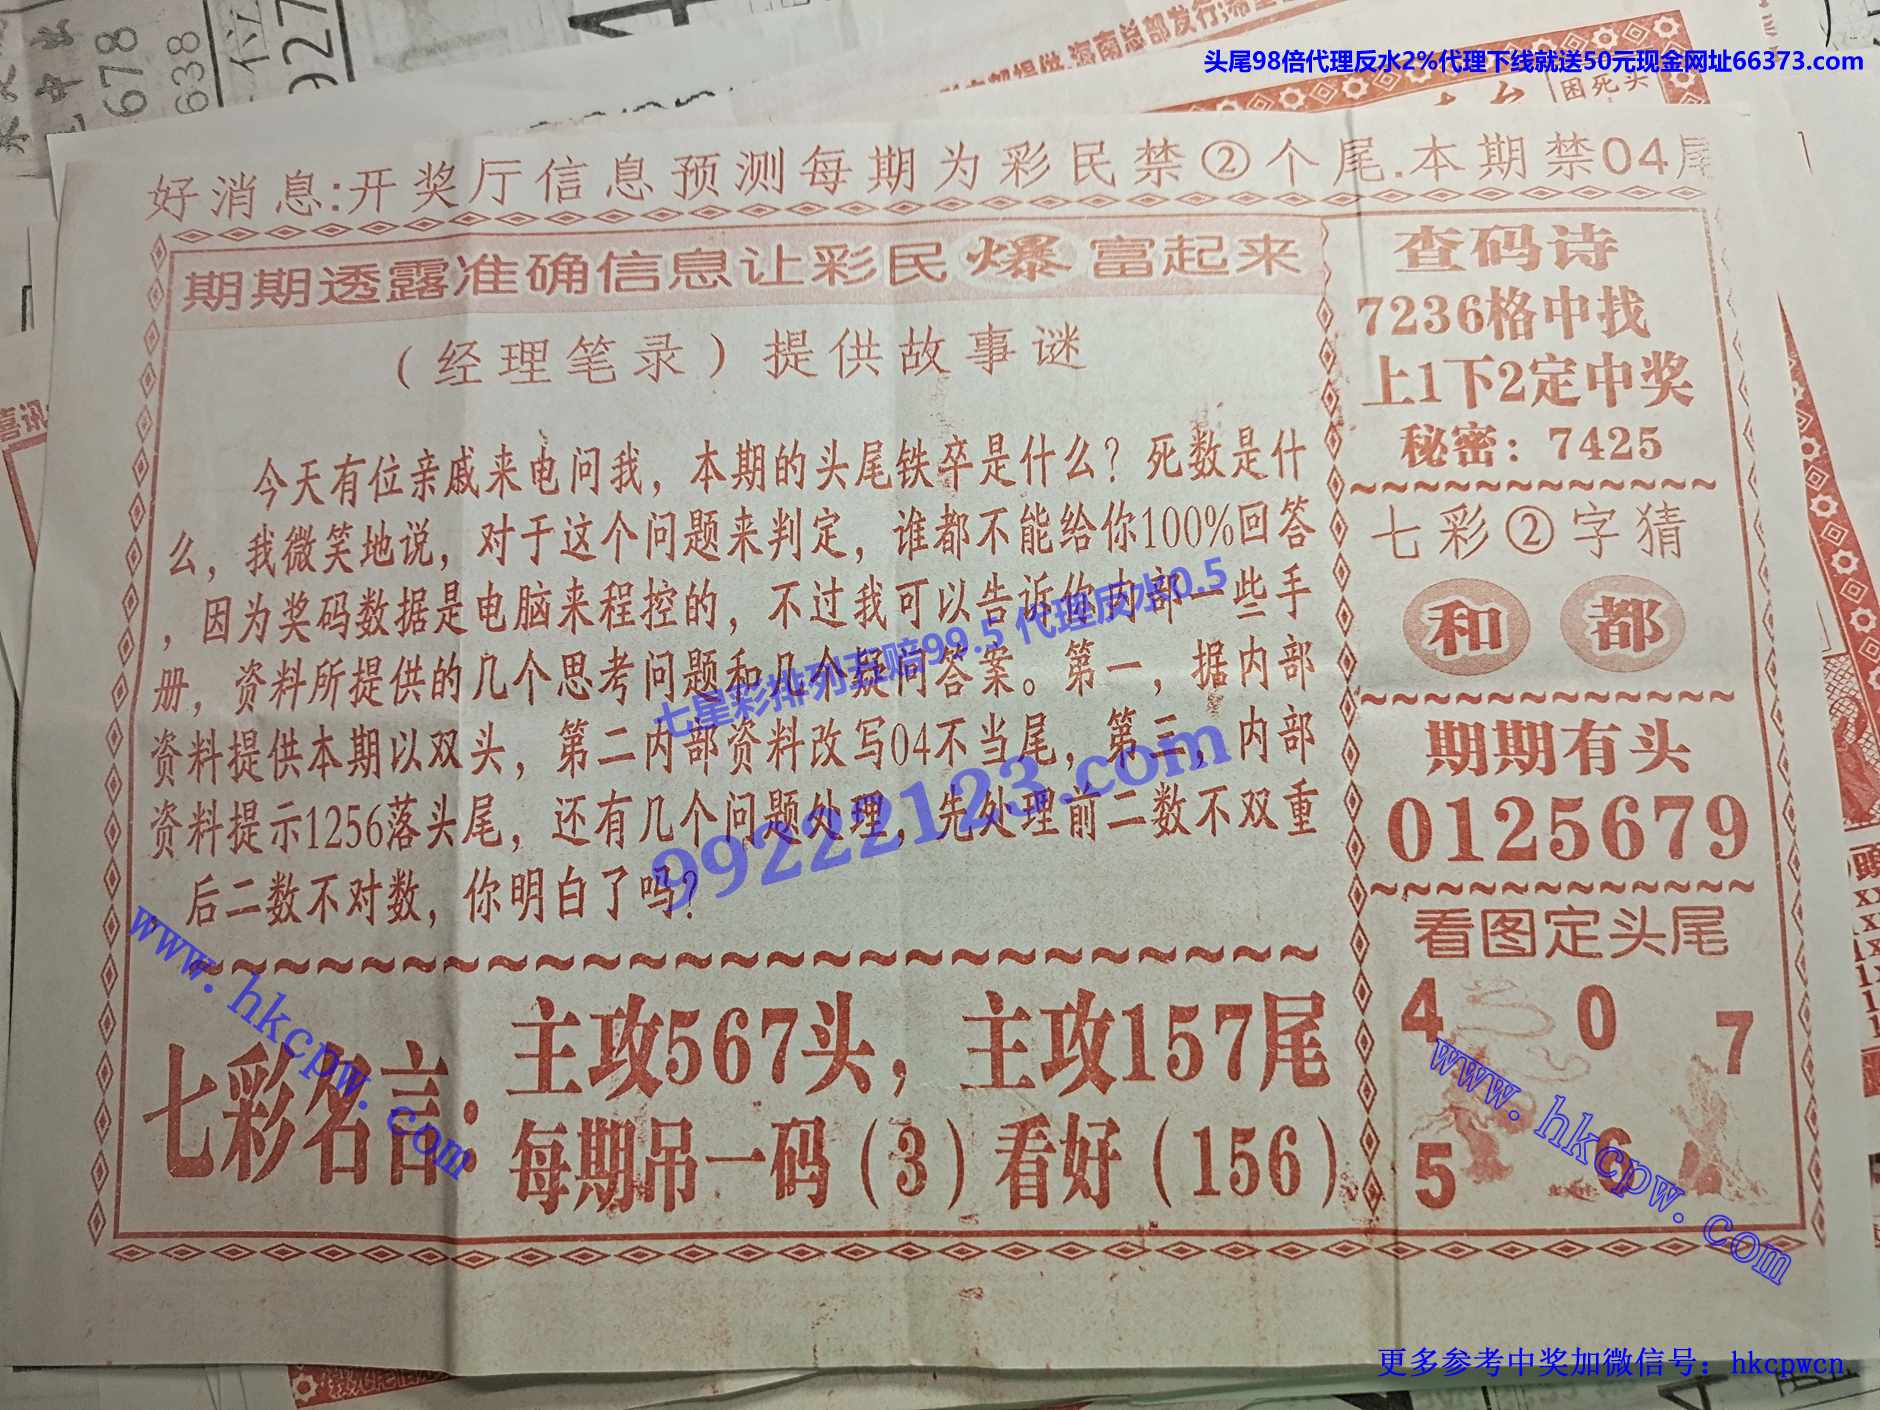 678
638
一位
927
海南总部发行;希望
头尾98倍代理反水2%代理下线就送50元现金网址66373.com
困死头
喜讯
好消息:开奖厅信息预测每期为彩民禁②个尾.本期禁04尾
期期透露准确信息让彩民爆富起来
（经理笔录）提供故事谜
今天有位亲戚来电问我，本期的头尾铁卒是什么？死数是什
么，我微笑地说，对于这个问题来判定，谁都不能给你100%回答
，因为奖码数据是电脑来程控的，不过我可以告诉你内部一些手
册，资料所提供的几个思考问题和几个疑问答案。第一，据内部
资料提供本期以双头，第二内部资料改写04不当尾，第三，内部
资料提示1256落头尾，还有几个问题处理，先处理前二数不双重
后二数不对数，你明白了吗?
七彩名言:
主攻567头，主攻157尾
每期吊一码（3）看好（156）
查码诗
7236格中找
上1下2定中奖
秘密：7425
七彩②字猜
和 都
期期有头
0125679
看图定头尾
4 0 7
5 6
七星彩排列五赔99.5 代理反水0.5
99222123.com
www.hkcpw.com
www.hkcpw.com
更多参考中奖加微信号：hkcpwcn